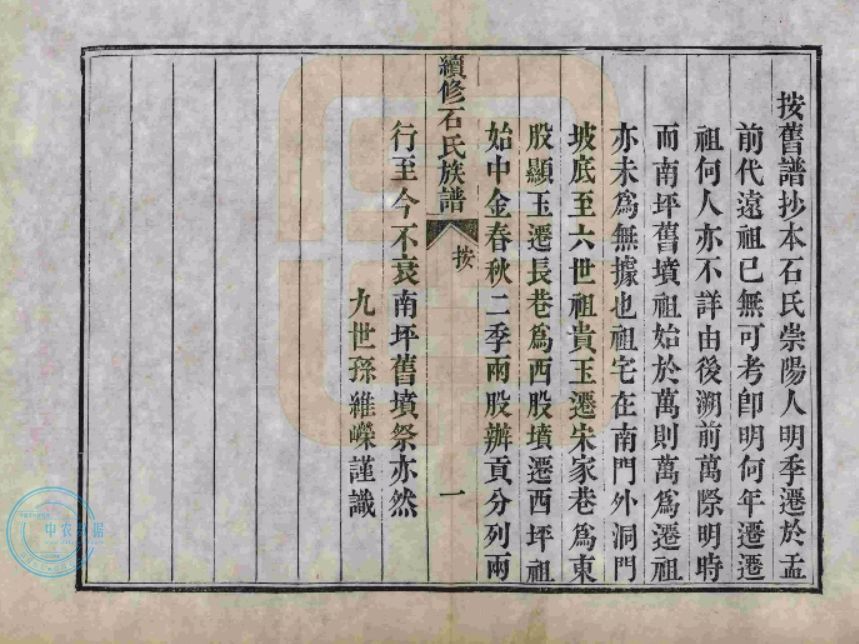 按舊譜抄本石氏崇陽人明季遷於孟
前代遠祖已無可考卽明何年遷遷
祖何人亦不詳由後溯前萬際明時
而南坪舊墳祖始於萬則萬爲遷祖
亦未爲無據也祖宅在南門外洞門
坡底至六世祖貴玉遷宋家巷爲東
股顯玉遷長巷爲西股墳遷西坪祖
始中金春秋二季兩股辦貢分列兩
續修石氏族譜
按
一
行至今不衰南坪舊墳祭亦然
九世孫維嶸謹識
中农